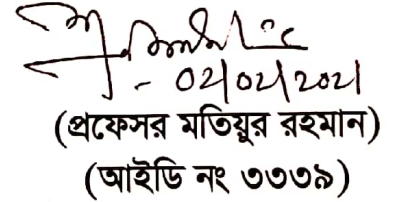 - 02/02/2021
(প্রফেসর মতিয়ুর রহমান)
(আইডি নং ৩৩৩৯)